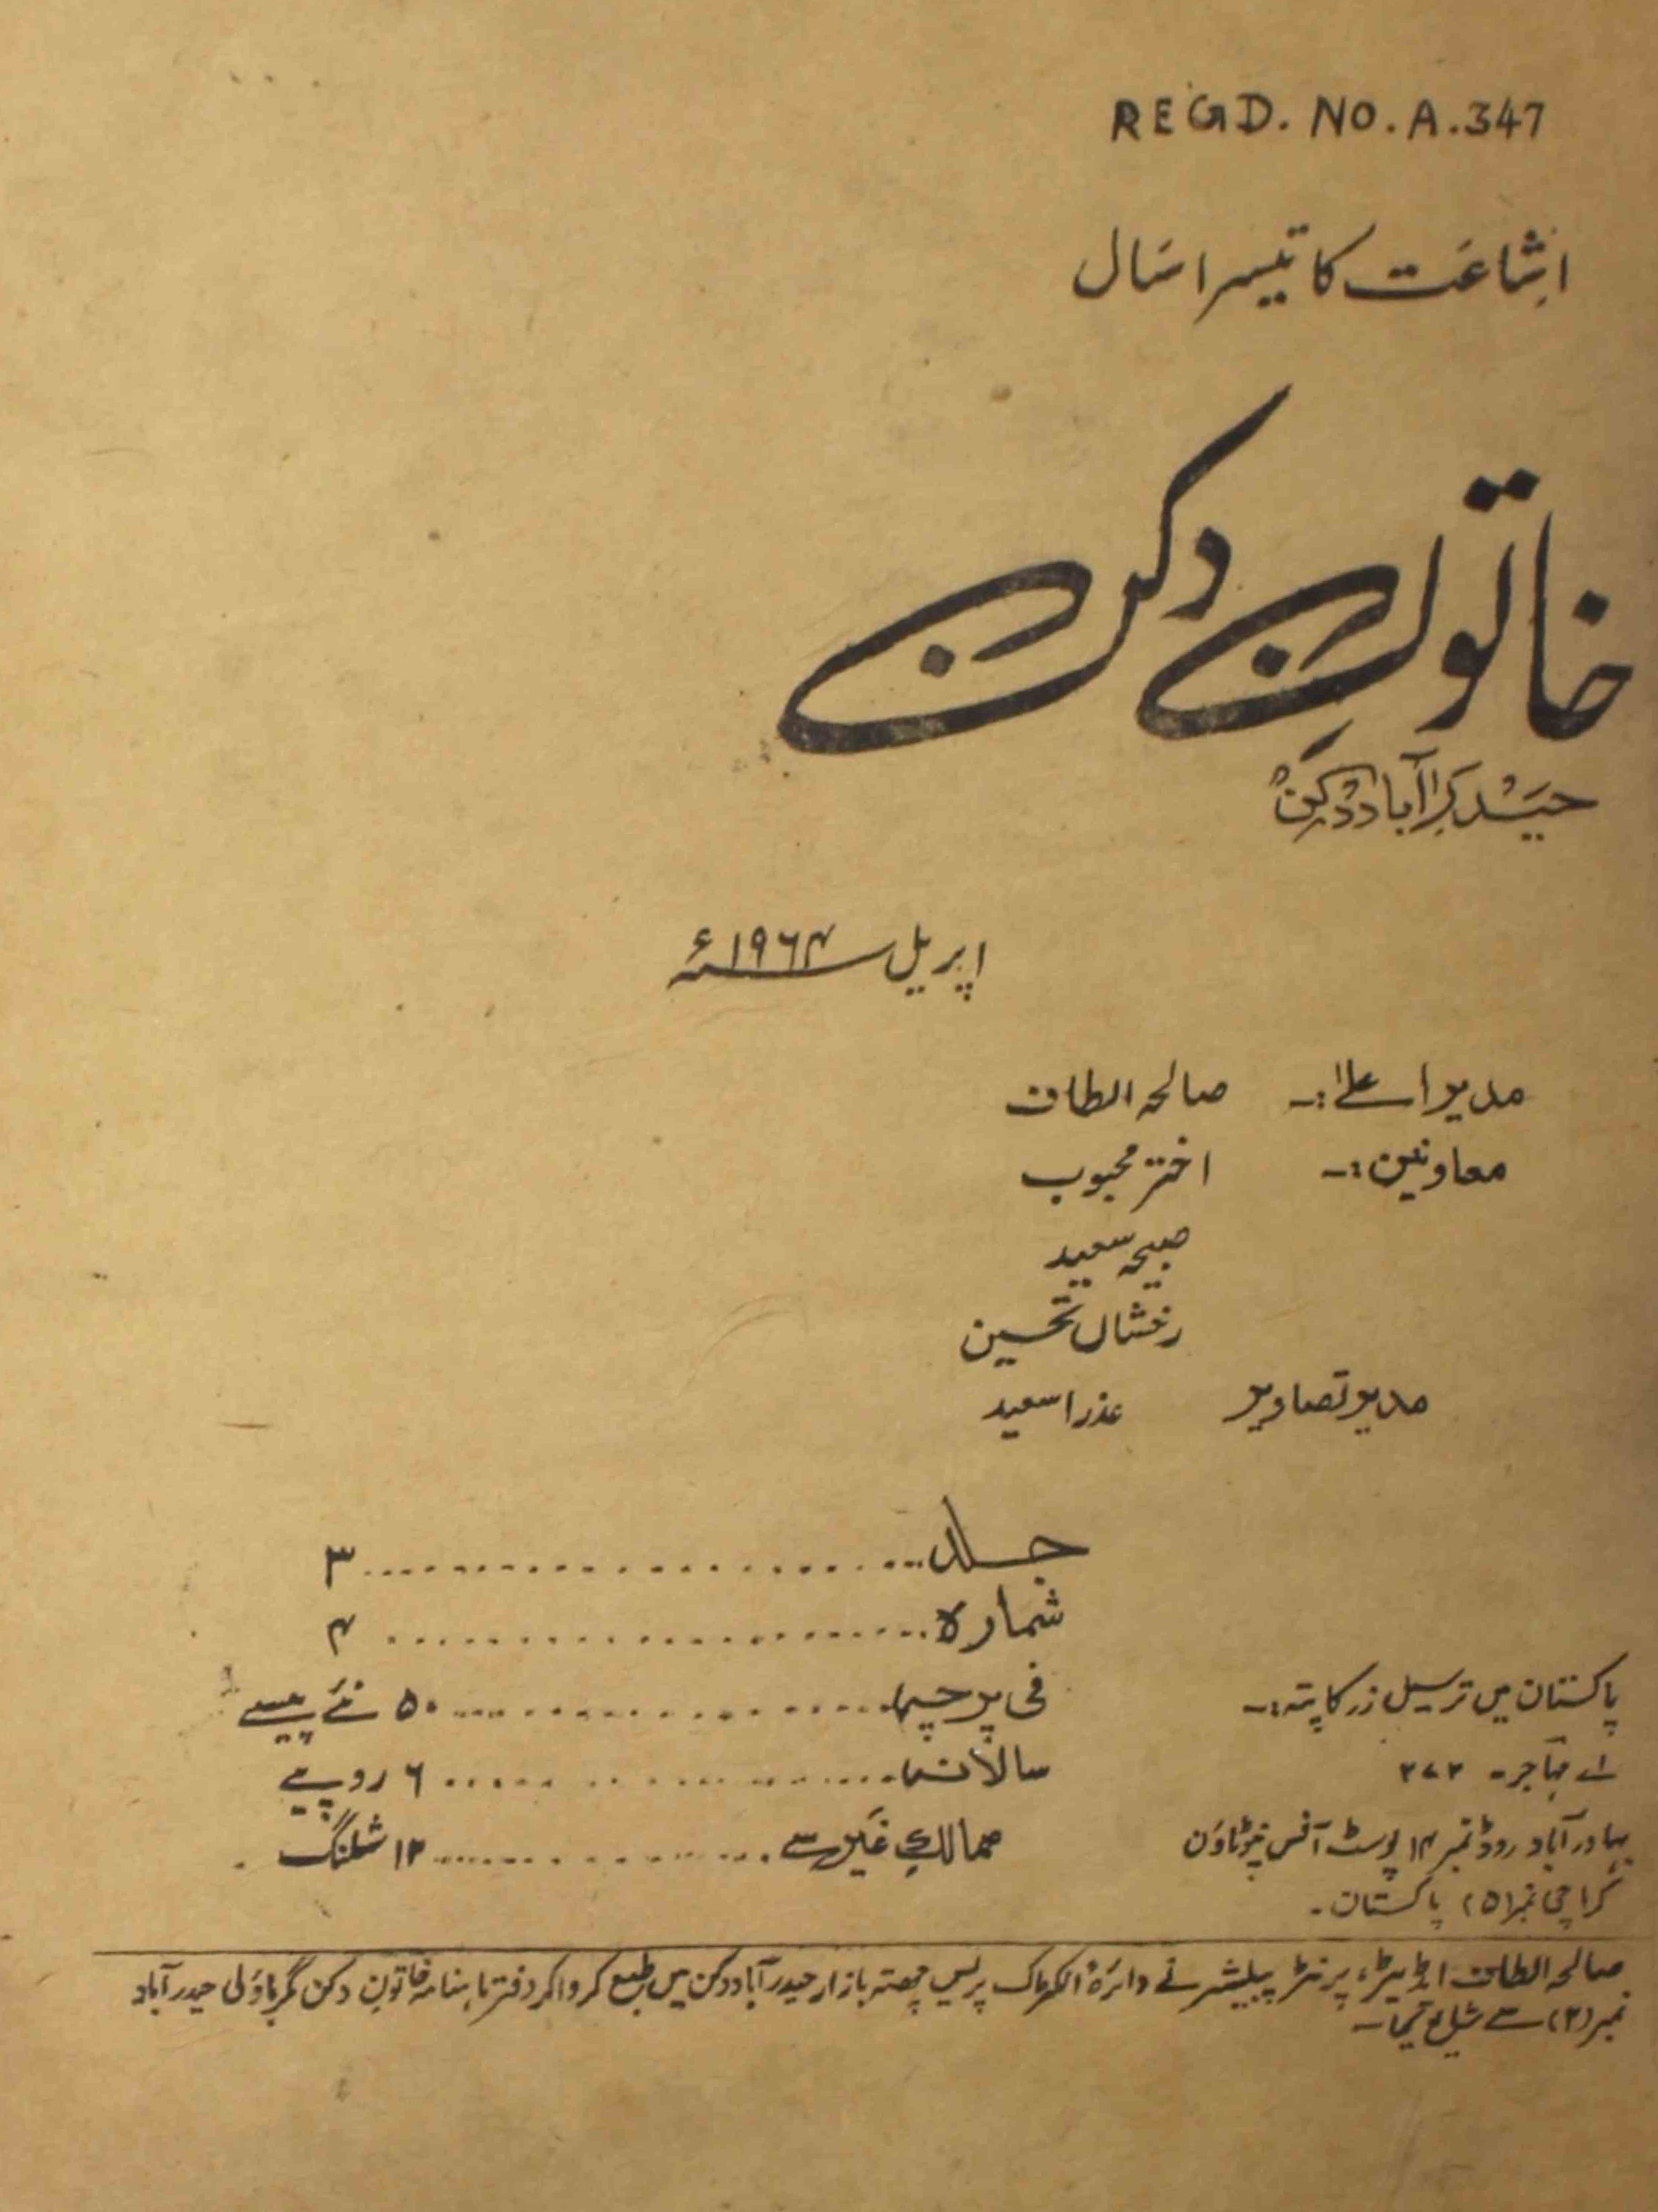 REGD. NO. A. 347
اشاعت کا تیسرا سال
خاتونِ دکن
حیدرآباد دکن
اپریل ۱۹۶۴ء
مدیر اعلےٰ:۔ صالحہ الطاف
معاونین:۔ اختر محبوب
صبیحہ سعید
رخشاں تحسین
مدیر تصاویر عذرا سعید
جلد ........ ۳
شمارہ ........ ۴
فی پرچہ ........ ۵۰ نئے پیسے
سالانہ ........ ۶ روپیے
ممالک غیر سے ........ ۱۲ شلنگ
پاکستان میں ترسیل زر کا پتہ:۔
اے مہاجر۔ ۲۷۲
بہادر آباد روڈ نمبر ۱۴ پوسٹ آفس نیوٹاؤن
کراچی نمبر (۵) پاکستان۔
صالحہ الطاف ایڈیٹر، پرنٹر پبلیشر نے دائرۂ الکٹرک پریس چھتہ بازار حیدرآباد دکن میں طبع کرواکر دفتر ماہنامہ خاتونِ دکن حیدرآباد
نمبر (۲) سے شایع کیا۔